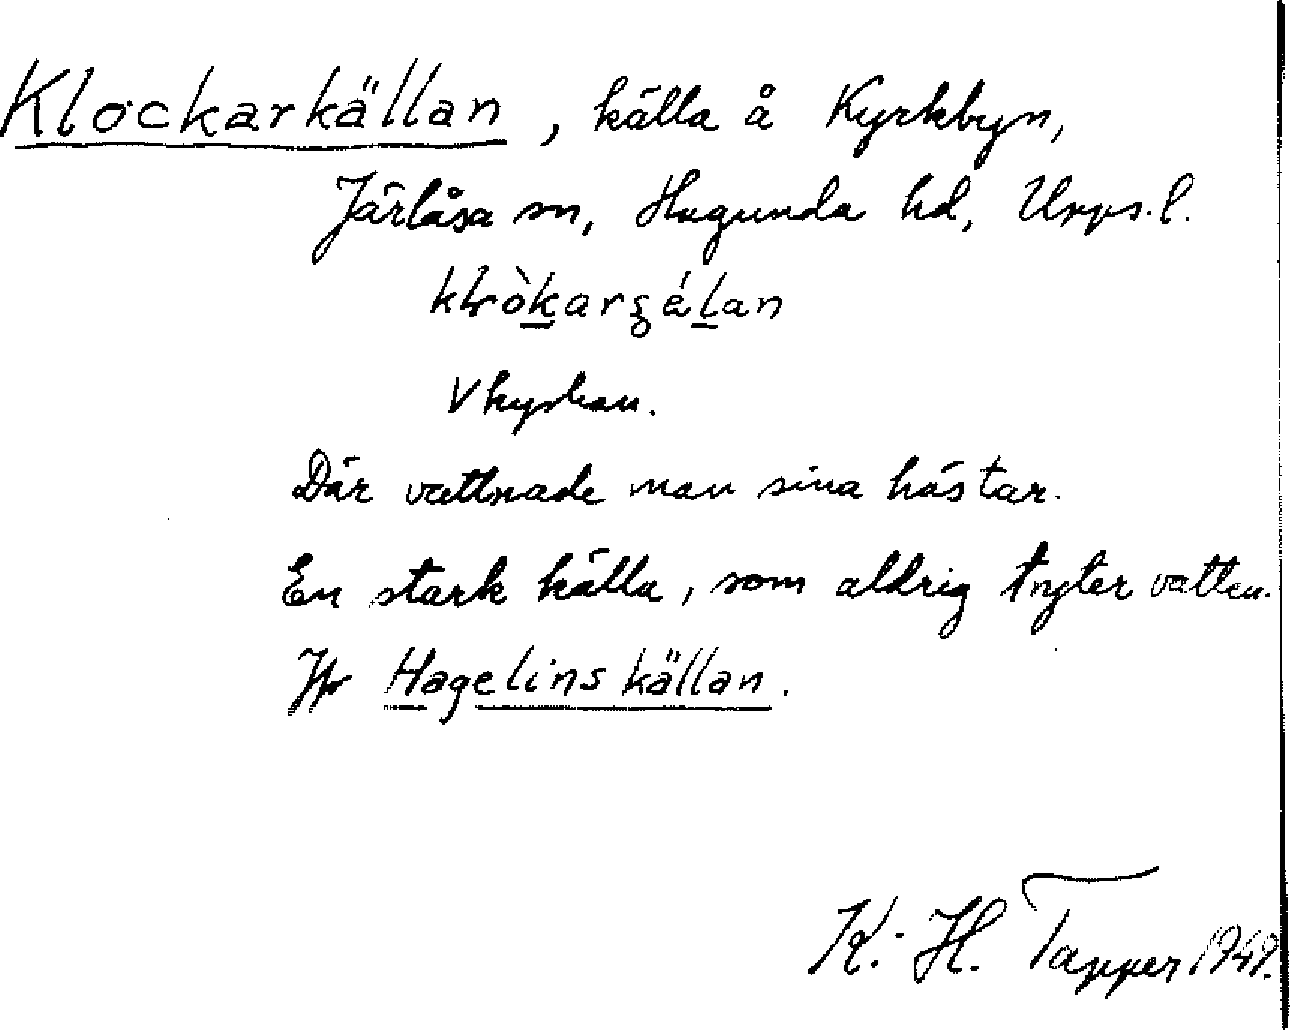 Klockarkällan, källa å Kyrkbyn,
Järlåsa sn, Hagunda hd, Upps. l.
V kyrkan.
Där vattnade man sina hästar.
En stark källa, som aldrig tryter vatten.
Jfr Hagelins källan.
K.-H. Tapper 1949.